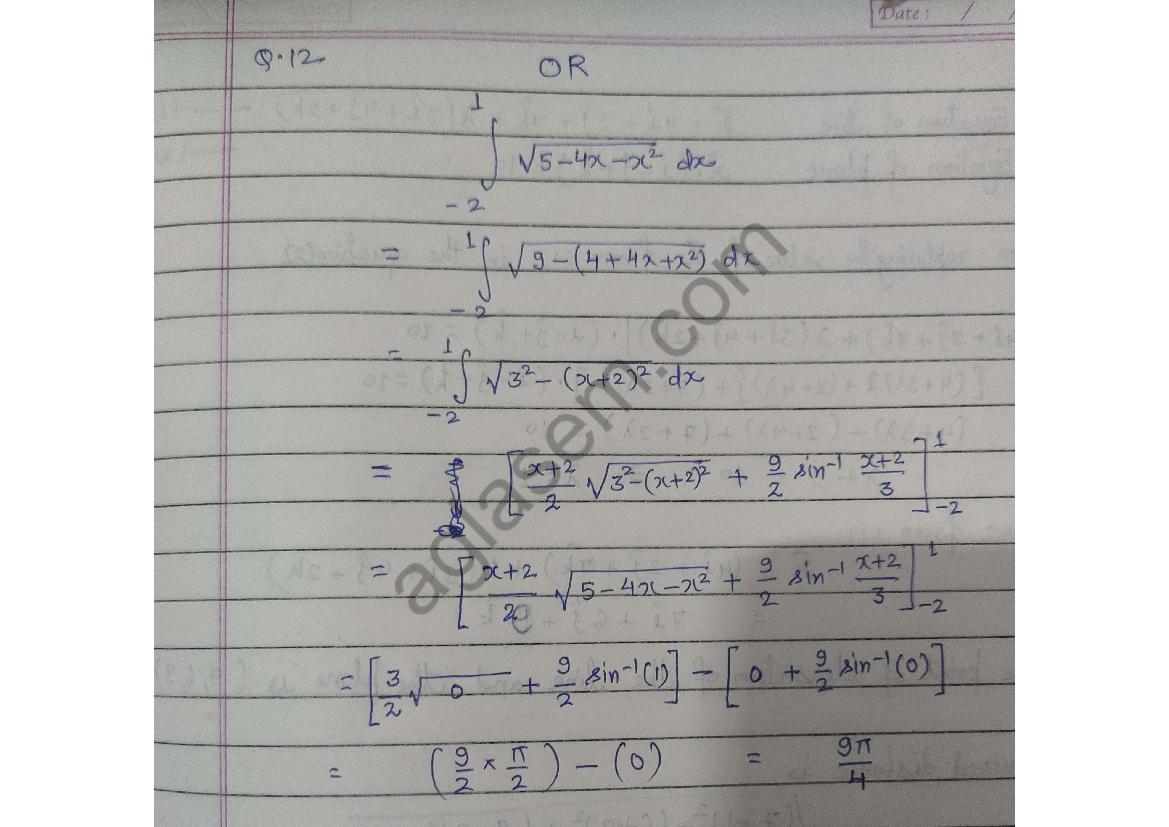 Date: / /
Q.12 OR
∫_{-2}^{1} √(5-4x-x²) dx
= ∫_{-2}^{1} √(9-(4+4x+x²)) dx
= ∫_{-2}^{1} √(3²-(x+2)²) dx
= [ (x+2)/2 √(3²-(x+2)²) + 9/2 sin⁻¹ (x+2)/3 ]_{-2}^{1}
= [ (x+2)/2 √(5-4x-x²) + 9/2 sin⁻¹ (x+2)/3 ]_{-2}^{1}
= [ 3/2 √0 + 9/2 sin⁻¹(1) ] - [ 0 + 9/2 sin⁻¹(0) ]
= (9/2 × π/2) - (0) = 9π/4
aglasem.com